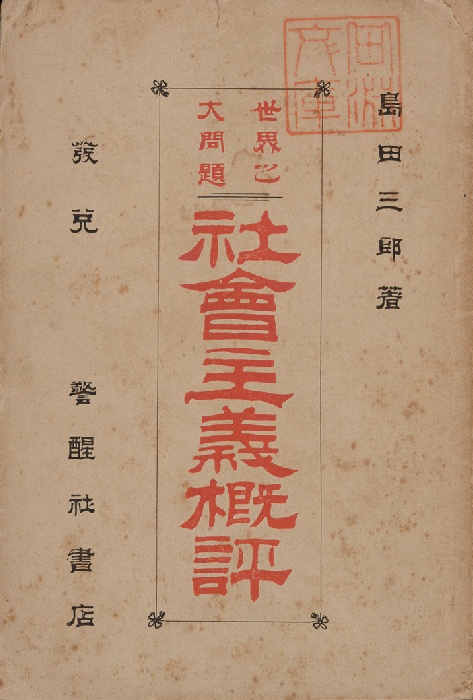 島田三郎著
世界之
大問題
社會主義概評
發兌 警醒社書店